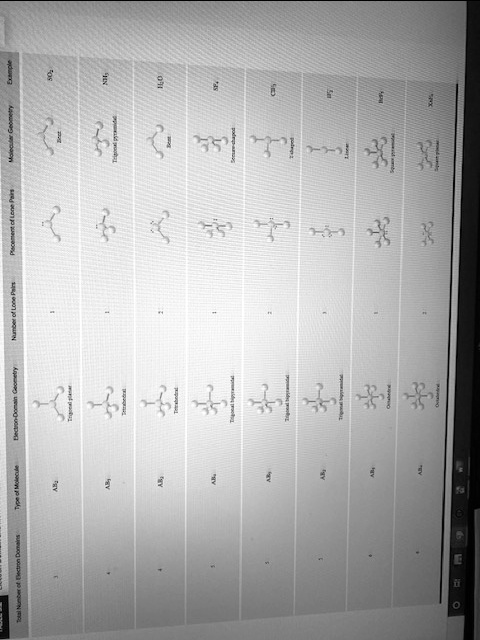 Total Number of Electron Domains Type of Molecule Electron-Domain Geometry Number of Lone Pairs Placement of Lone Pairs Molecular Geometry Example
3 AB₂ Trigonal planar 1 Bent SO₂
4 AB₃ Tetrahedral 1 Trigonal pyramidal NH₃
4 AB₂ Tetrahedral 2 Bent H₂O
5 AB₄ Trigonal bipyramidal 1 Seesaw-shaped SF₄
5 AB₃ Trigonal bipyramidal 2 T-shaped ClF₃
AB₂ Trigonal bipyramidal 3 Linear
6 AB₅ Octahedral 1 Square pyramidal BrF₅
6 AB₄ Octahedral 2 Square planar XeF₄